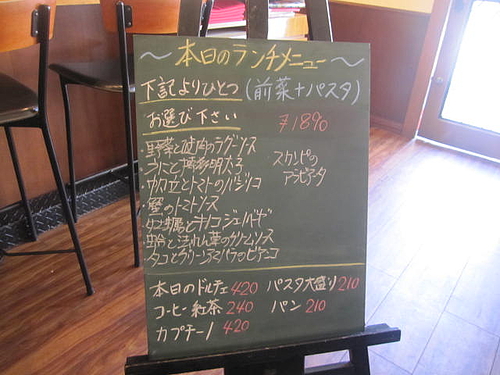 〜本日のランチメニュー〜
下記よりひとつ（前菜＋パスタ）
お選び下さい ¥1890
・野菜と挽肉のラグーソース
・うにと 明太子
・帆立とトマトのバジリコ
・蟹のトマトソース
スカンピの
アラビアータ
牡蠣とキノコ ジェノバーゼ
ほうれん草のクリームソース
タコとグリーンアスパラのビアンコ
本日のドルチェ 420 パスタ大盛り 210
コーヒー 紅茶 240 パン 210
カプチーノ 420